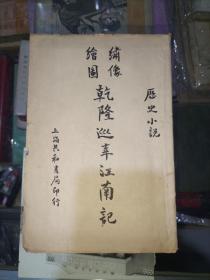 歷史小說
繡像
繪圖
乾隆巡幸江南記
上海共和書局印行